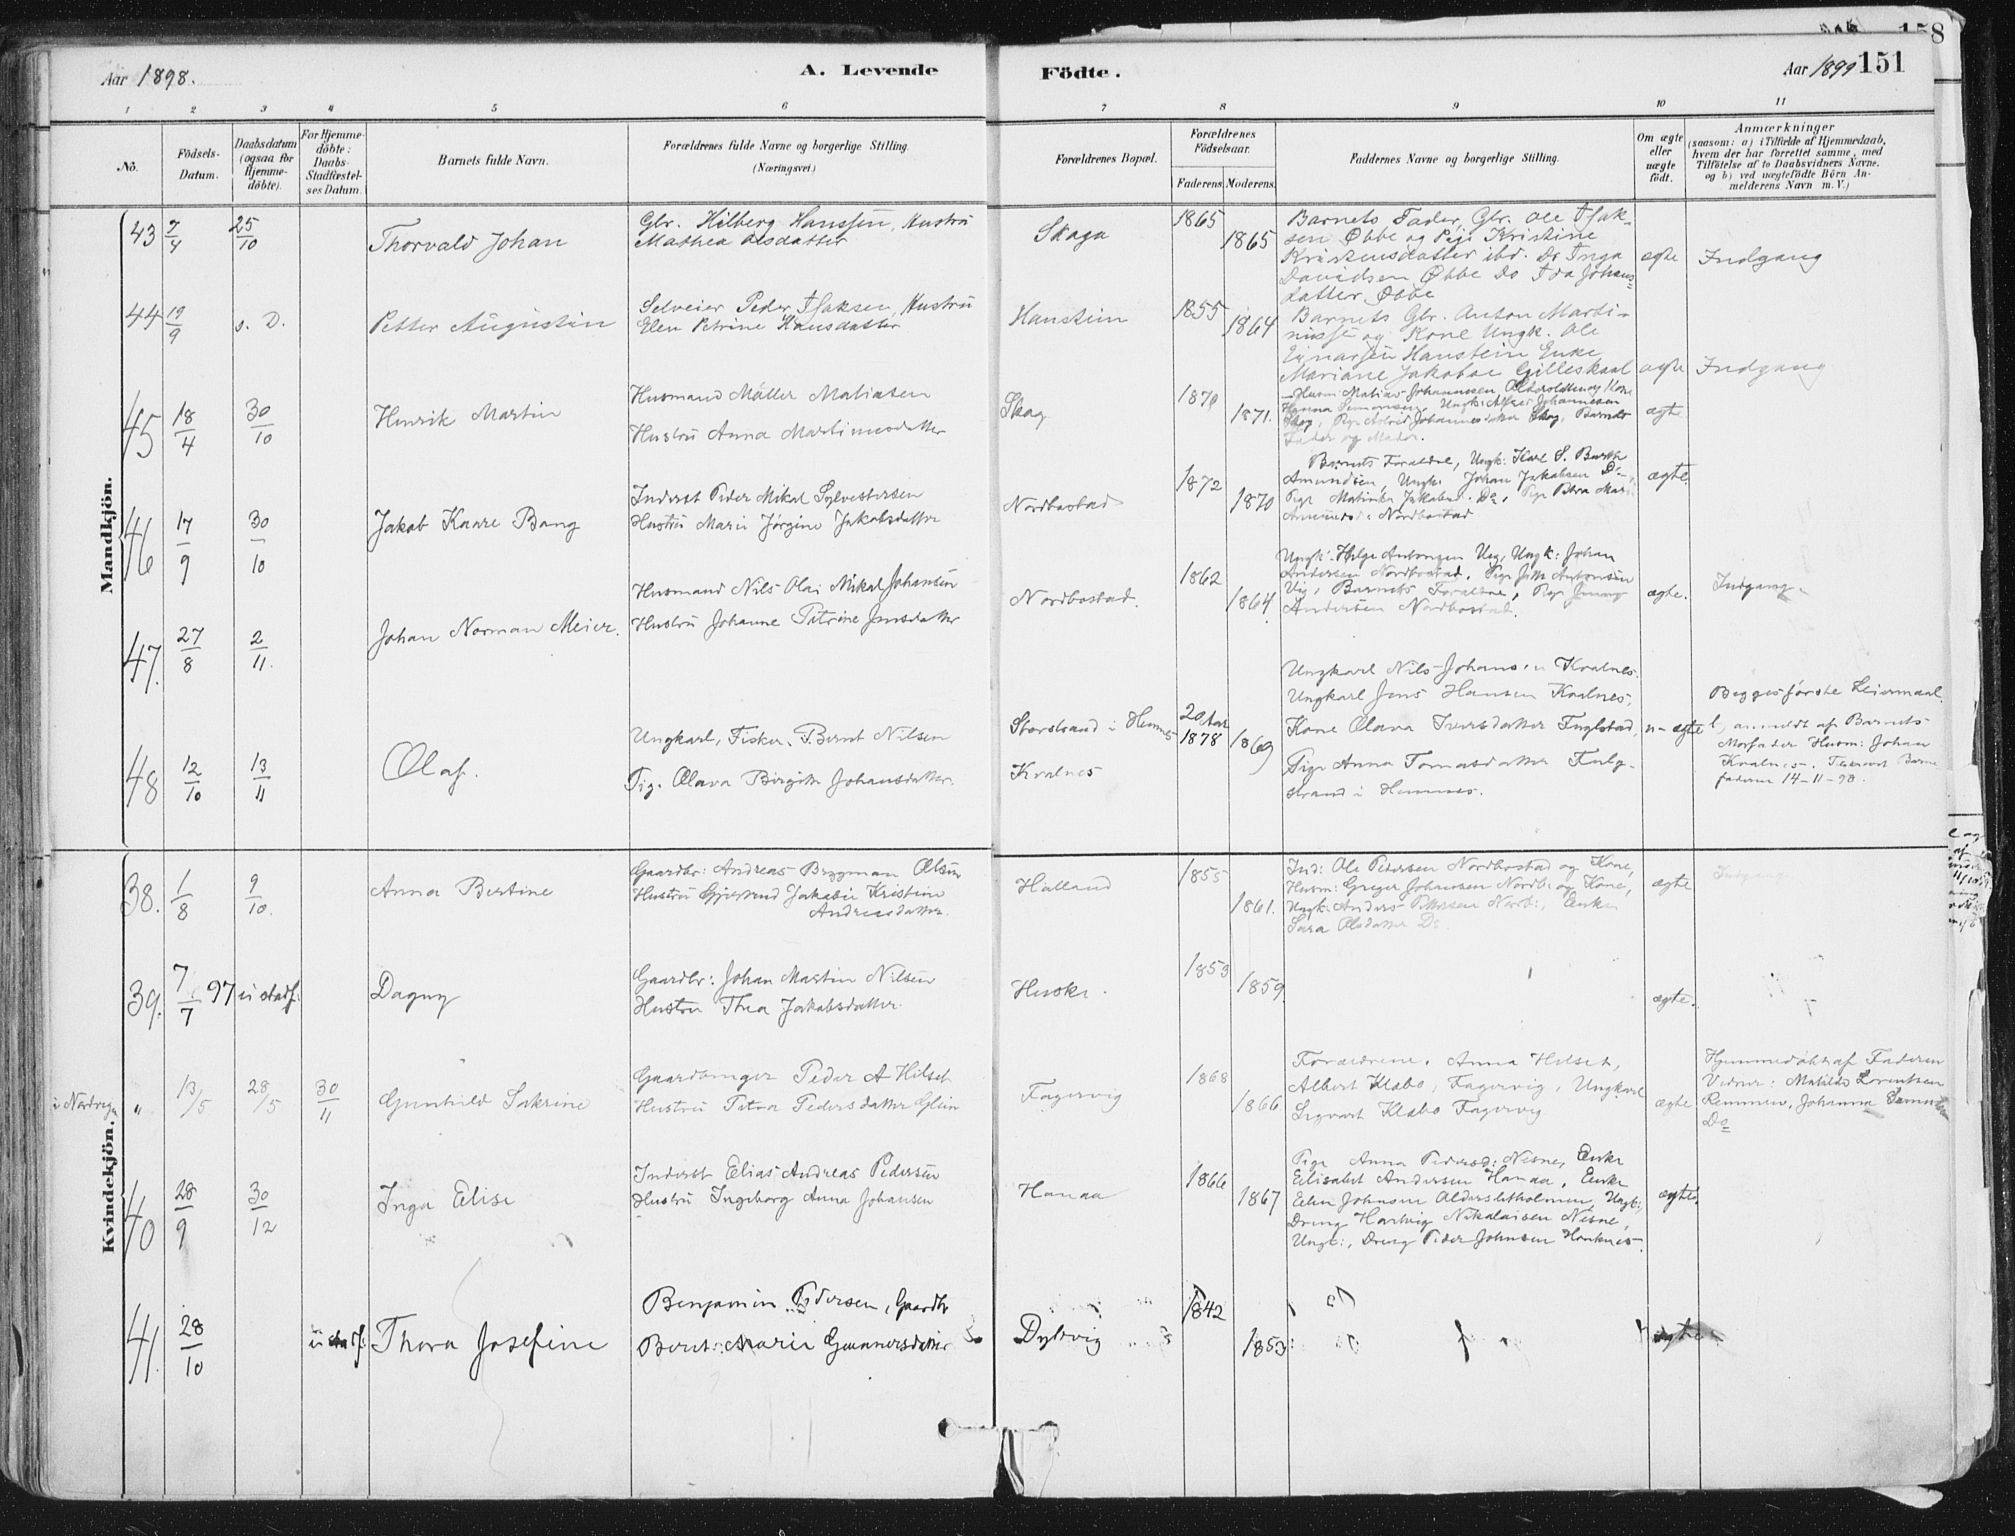 Aar 1898.
A. Levende
Födte.
Aar 1899 151
158
1 2 3 4 5 6 7 8 9 10 11
No.
Födsels-
Datum.
Daabsdatum
(ogsaa for
Hjemme-
döbte).
For Hjemme-
döbte:
Daabs-
Stadfæstel-
ses Datum.
Barnets fulde Navn.
Forældrenes fulde Navne og borgerlige Stilling.
(Næringsvei.)
Forældrenes Bopæl.
Forældrenes
Födselsaar.
Faderens. Moderens.
Faddernes Navne og borgerlige Stilling.
Om ægte
eller
uægte
födt.
Anmærkninger
(saasom: a) i Tilfælde af Hjemmedaab,
hvem der har forrettet samme, med
Tilföielse af to Daabsvidners Navne,
og b) ved uægtefödte Börn An-
melderens Navn m. V.)
Mandkjön.
43 7/4 25/10
Thorvald Johan
Gbr. Hilberg Hanssen, Hustru
Mathea Olsdatter
Skaga
1865
1865
Barnets Fader, Gbr. Ole Isak-
sen Øbbe og Pige Kristine
Kristensdatter ibd. Do Inga
Davidsen Øbbe Do Ida Johans-
datter Øbbe
ægte
Indgang
44 19/9 s. D.
Petter Augustin
Selveier Peder Isaksen, Hustru
Elen Petrine Hansdatter
Hanstein
1855
1864
Barnets Gbr. Anton Marti-
nussen og Kone Ungk. Ole
Einarsen Hanstein Enke
Mariane Jakobae Gilleskaal
ægte
Indgang
45 18/4 30/10
Henrik Martin
Husmand Möller Matiasen
Hustru Anna Martinusdatter
Skog
1870
1871.
Husm: Matias Johannessen og Kone
Hanna Simonsen, Ungk: Johannesen
Skog, Pige Johannesdatter Skog, Barnets
Fader og Moder.
ægte
46 17/9 30/10
Jakob Kaare Bang
Inderst Peder Mikal Sylvestersen
Hustru Marie Jörgine Jakobsdatter
Nordbostad
1872
1870
Barnets Forældre, Ungk: Karl S. Barth
Amundsen, Ungk: Johan Jakobsen Do,
Pige Matinka Jakobsd. Do, Pige Petra Mari
Amundsd: Nordbostad
ægte.
47. 27/8 2/11.
Johan Norman Meier.
Husmand Nils Olai Mikal Johansen
Hustru Johanne Petrine Jensdatter
Nordbostad.
1862
1864
Ungk: Helge Antonsen Vig, Ungk: Johan
Andersen Nordbostad. Pige Antonsen
Vig, Barnets Forældre, Pige Jenny
Andersen Nordbostad.
ægte.
Indgang.
48 12/10 13/11
Olaf.
Ungkarl, Fisker, Bernt Nilsen
Pig. Olava Birgitte Johansdatter.
Storstrand i Hemnes
Kvalnes
20 Aar
1878
1869
Ungkarl Nils Johansen Kvalnes.
Ungkarl Jens Hansen Kvalnes,
Kone Olava Iversdatter Fuglstad,
Pige Anna Tomasdatter
strand i Hemnes.
u-ægte
Begges förste Leiermaal.
anmeldt af Barnets
Morfader Husm: Johan
Kvalnes. Barne-
faderen 14-11-98.
Kvindekjön.
38. 1/8 9/10.
Anna Bertine
Gaardbr: Andreas Bryggman Olsen
Hustru Gjertrud Jakobie Kristine
Andreasdatter.
Halland
1855
1861.
Ind: Ole Pedersen Nordbostad og Kone,
Husm: Greger Johansen Nordb: og Kone,
Ungk: Anders Pettersen Nordb:, Enke
Sara Olsdatter Do.
ægte
Indgang
39. 7/7 97 ei stadf:
Dagny
Gaardbr: Johan Martin Nilsen
Hustru Thea Jakobsdatter.
Huske.
1853
1859.
ægte.
i Nordvigen
" 13/5 28/5 30/11
Gunhild Sakrine
Gaardbruger Peder A Hilset
Hustru Petra Pedersdatter Glein
Fagervig
1868
1866
Forældrene, Anna Hilset,
Albert Klæbo, Fagervig, Ungkarl
Sigvart Klæbo Fagervig
ægte
Hjemmedöbt af Faderen
Vidner: Matilde Lorentsen
Remmen, Johanna
Do
40 28/9 30/12
Inga Elise
Inderst Elias Andreas Pedersen
Hustru Ingeborg Anna Johansen
Hanaa
1866
1867
Pige Anna Pedersd: Nesne, Enke
Elisabet Andersen Hanaa, Enke
Elen Johnsen Aldersletholmen, Ungk:,
Dreng Hartvig Nikolaisen Nesne,
Ungk:, Dreng Peder Johnsen
ægte.
41. 28/10
ei stadf.
Thora Josefine
Benjamin Pedersen, Gaardbr
Berit Marie Gunnersdatter
Dybvig
1842
1853
ægte